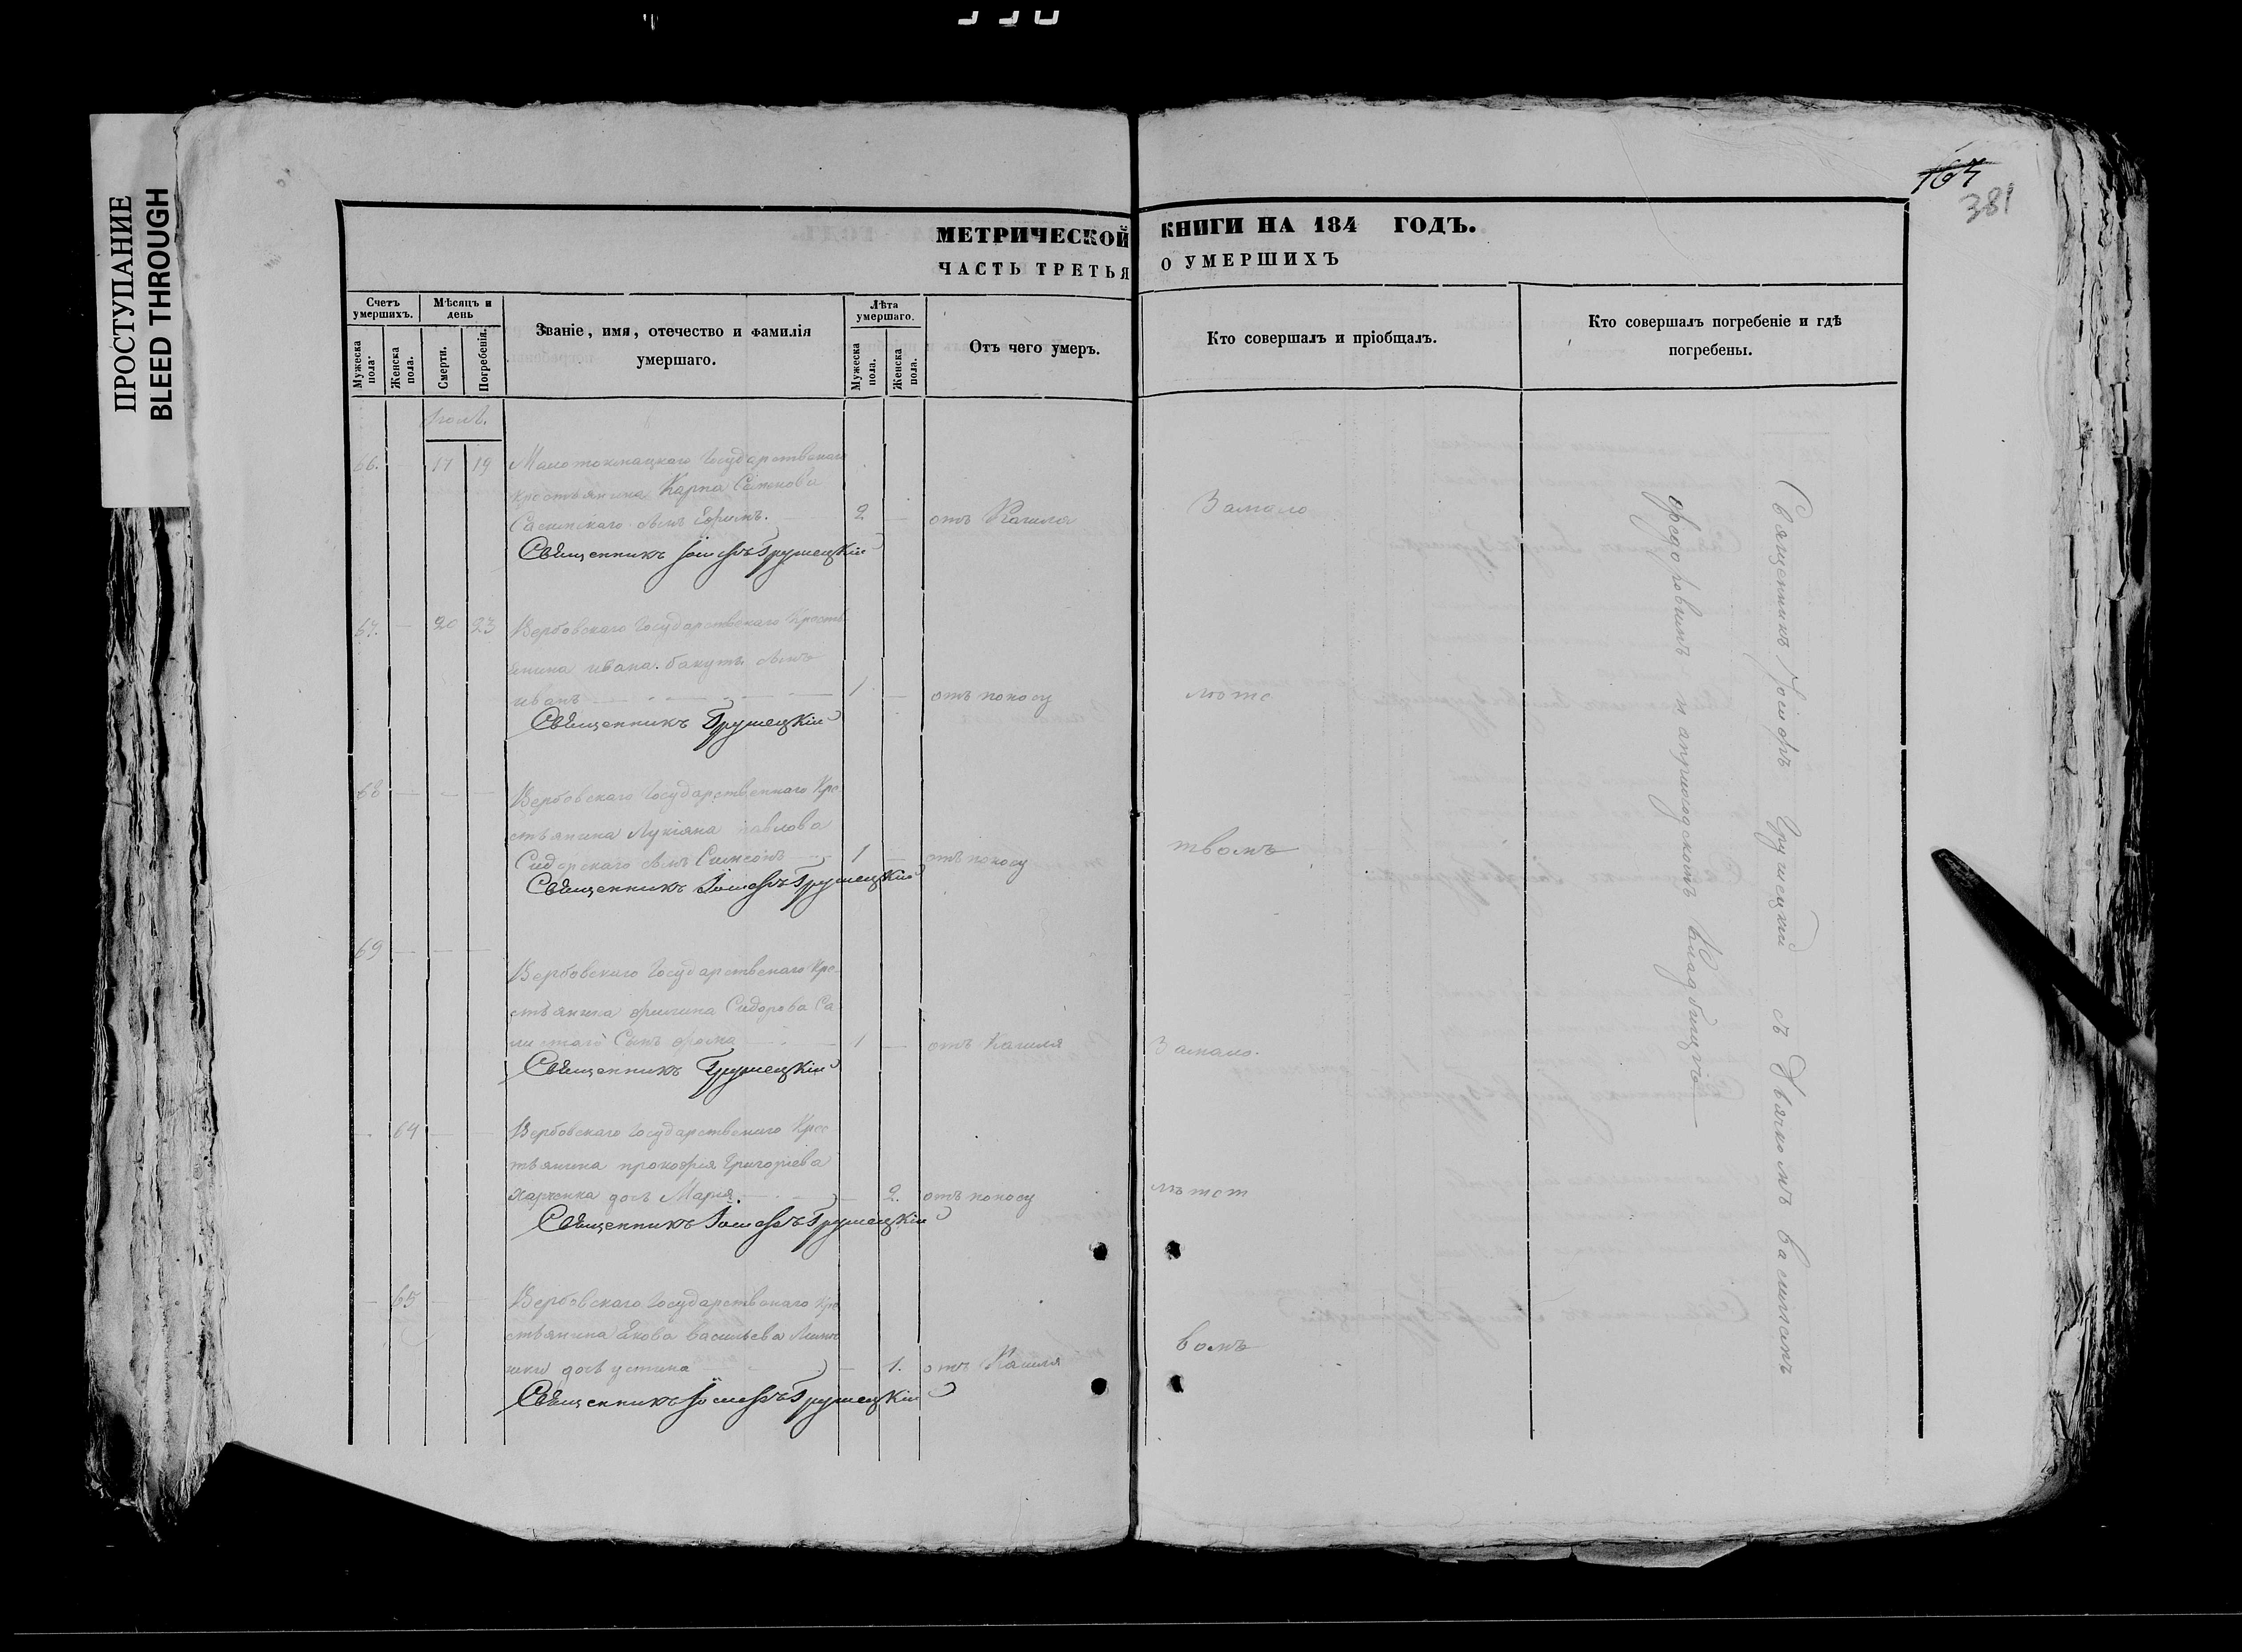 ПРОСТУПАНИЕ
BLEED THROUGH
164
381
МЕТРИЧЕСКОЙ КНИГИ НА 184 ГОДЪ.
ЧАСТЬ ТРЕТЬЯ О УМЕРШИХЪ
Счетъ умершихъ.
Мужеска пола.
Женска пола.
Мѣсяцъ и день
Смерти.
Погребенія.
Званіе, имя, отечество и фамилія
умершаго.
Лѣта умершаго.
Мужеска пола.
Женска пола.
Отъ чего умеръ.
Кто совершалъ и пріобщалъ.
Кто совершалъ погребеніе и гдѣ
погребены.
66. 17 19 Малотокмацкаго Государственаго
крестьянина Карпа Семенова
сынъ Ефимъ. 2 — отъ Кашля Замало
Священникъ Іосифъ Грушецкій
67. — 20 23 Вербовскаго Государственаго Кресть
янина ивана бакуты сынъ
иванъ 1 — отъ поносу лѣтс
Священникъ Грушецкій
68 — — — Вербовскаго Государственнаго Кре
стьянина Лукіяна павлова
Сидорскаго сынъ Симеонъ 1 — отъ поносу твомъ
Священникъ Іосифъ Грушецкій
69 — — —
Вербовскаго Государственаго Кре
стьянина филипа Сидорова Са
Сынъ фома 1 — отъ Кашля Замало.
Священникъ Грушецкій
— 64 — — Вербовскаго Государственаго Крес
тьянина прокофія Григоріева
харченка дочь Марія. — 2. отъ поносу лѣтст
Священникъ Іосифъ Грушецкій
— 65 — — Вербовскаго Государственаго Кре
стьянина Якова васильева
дочь устина — 1. отъ Кашля вомъ
Священникъ Іосифъ Грушецкій
Священникъ Іосифъ Грушецкій съ Дьячкомъ василіемъ
федоровымъ на приходскомъ Кладбищѣ